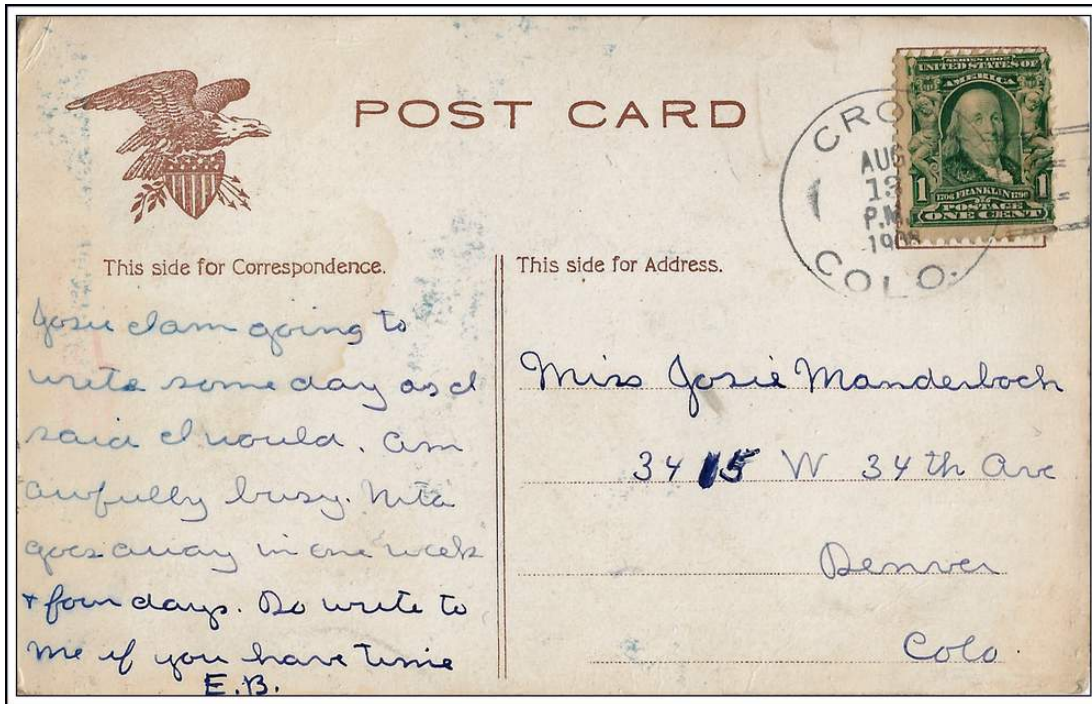 POST CARD
CRO
AUG
13
P.M.
190
COLO.
SERIES 1902
UNITED STATES OF
AMERICA
1 1706 FRANKLIN 1790 1
POSTAGE
ONE CENT
This side for Correspondence.
Josie I am going to
write some day as I
said I would. Am
awfully busy. Nita
goes away in one week
+ four days. Do write to
me if you have time
E.B.
This side for Address.
Miss Josie Manderbach
3415 W 34th Ave
Denver
Colo.